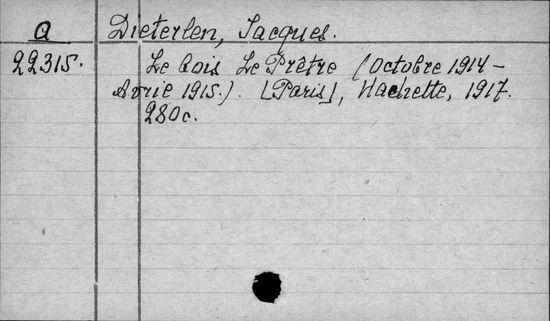 Q Dieterlen, Jacques.
22315. Le bois Le Prêtre (Octobre 1914 –
Avrie 1915.). [Paris], Hachette, 1917.
280c.